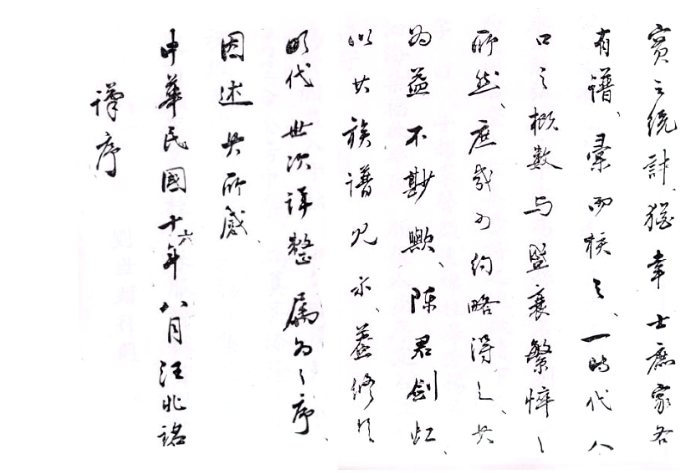 實之統計、猶幸士庶家各
有譜、彙而核之、一時代人
口之概數与盛衰繁悴之
所然、庶或可約略得之、其
為益不尠歟、陳君劍虹、
以其族譜見示、蓋修於
明代世次詳整屬為之序、
因述其所感、
中華民國十六年八月汪兆銘
謹序